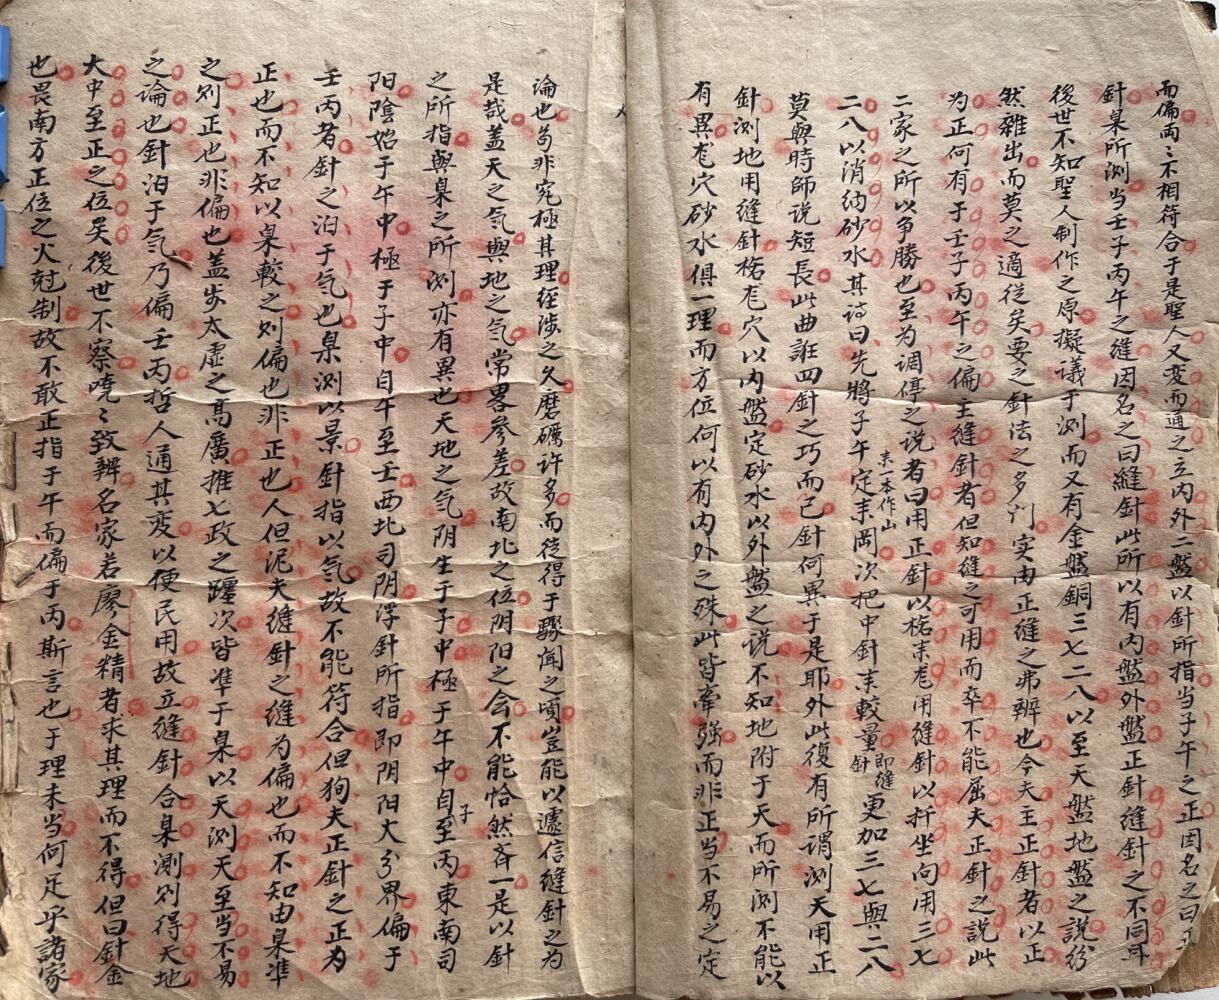 而偏兩〻不相符合于是聖人又变而通之立内外二盤以針所指当子午之正因名之曰正
針臬所測当壬子丙午之缝因名之曰縫針此所以有内盤外盤正針縫針之不同耳
後世不知聖人制作之原擬議于測而又有金盤銅三七二八以至天盤地盤之説紛
然雜出而莫之適從矣要之針法之多门实由正縫之弗辨也今夫主正針者以正
为正何有于壬子丙午之偏主缝針者但知缝之可用而卒不能屈夫正針之説此
二家之所以争勝也至为调停之说者曰用正針以格耒龙用缝針以扦坐向用三七
二八以消纳砂水其诗曰先將子午定耒岡次把中針耒較量即缝針更加三七與二八
耒一本作山
莫與時師说短長此曲誑四針之巧而已針何異于是耶外此復有所謂測天用正
針測地用缝針格龙穴以内盤定砂水以外盤之说不知地附于天而所測不能以
有異龙穴砂水俱一理而方位何以有内外之殊此皆牽强而非正当不易之定
論也苟非究極其理经涉之久磨礪许多而徒得于驟闻之頃豈能以遽信缝針之为
是哉盖天之气與地之气常畧參差故南北之位阴阳之会不能恰然斉一是以針
之所指與臬之所測亦有異也天地之气阴生于子中極于午中自子至丙東南司
阳陰始于午中極于子中自午至壬西北司阴浮針所指即阴阳大分界偏于
壬丙者針之泊于气也臬測以景針指以气故不能符合但狥夫正針之正为
正也而不知以臬較之则偏也非正也人但泥夫缝針之缝为偏也而不知由臬準
之则正也非偏也盖步太虚之高廣推七政之躔次皆準于臬以天測天至当不易
之論也針泊于气乃偏壬丙哲人通其变以便民用故立缝針合臬測则得天地
大中至正之位矣後世不察嘵〻致辨名家若廖金精者求其理而不得但曰針金
也畏南方正位之火尅制故不敢正指于午而偏于丙斯言也于理未当何足乎諸家